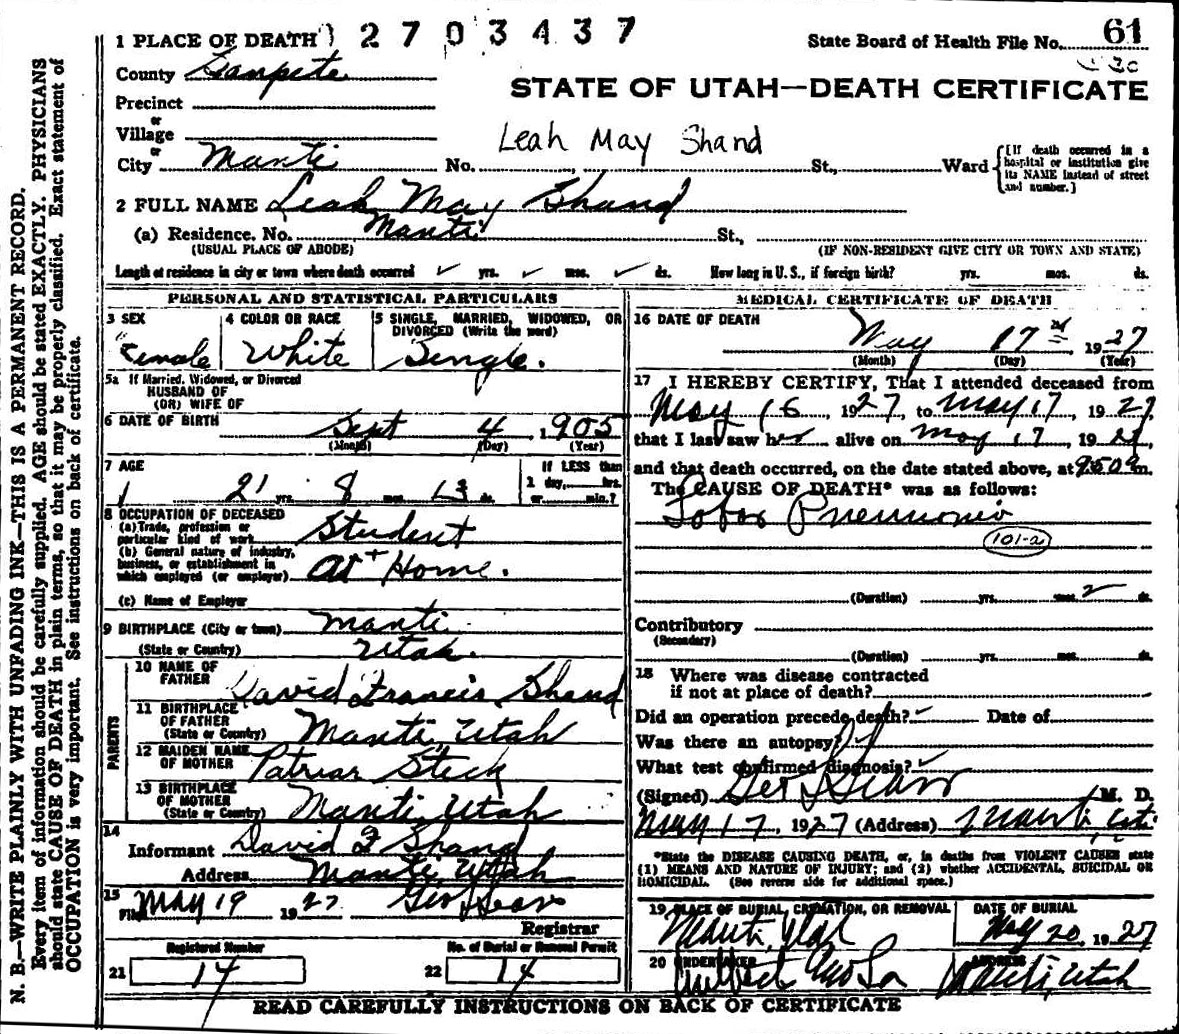 2703437
1 PLACE OF DEATH
State Board of Health File No. 61
County Sanpete
STATE OF UTAH—DEATH CERTIFICATE
Precinct
or
Village
Leah May Shand
or
City Manti No. St., Ward
[If death occurred in a hospital or institution give its NAME instead of street and number.]
2 FULL NAME Leah May Shand
(a) Residence. No. Manti St.,
(USUAL PLACE OF ABODE) (IF NON-RESIDENT GIVE CITY OR TOWN AND STATE)
Length of residence in city or town where death occurred yrs. mos. ds. How long in U. S., if foreign birth? yrs. mos. ds.
PERSONAL AND STATISTICAL PARTICULARS
3 SEX 4 COLOR OR RACE 5 SINGLE, MARRIED, WIDOWED, OR DIVORCED (Write the word)
Female White Single.
5a If Married, Widowed, or Divorced
HUSBAND OF
(OR) WIFE OF
6 DATE OF BIRTH Sept 4 1905
(Month) (Day) (Year)
7 AGE If LESS than
1 day, hrs.
21 yrs. 8 mos. 13 ds. or min.?
8 OCCUPATION OF DECEASED
(a) Trade, profession or particular kind of work Student
(b) General nature of industry, business, or establishment in which employed (or employer) at Home.
(c) Name of Employer
9 BIRTHPLACE (City or town) Manti
(State or Country) Utah.
PARENTS
10 NAME OF FATHER David Francis Shand
11 BIRTHPLACE OF FATHER (State or Country) Manti, Utah
12 MAIDEN NAME OF MOTHER Steck
13 BIRTHPLACE OF MOTHER (State or Country) Manti, Utah
14
Informant David F Shand
Address Manti, Utah
15
Filed May 19 1927 Geo L Sears
Registrar
Registered Number No. of Burial or Removal Permit
21 14 22 14
MEDICAL CERTIFICATE OF DEATH
16 DATE OF DEATH
May 17 1927
(Month) (Day) (Year)
17 I HEREBY CERTIFY, That I attended deceased from
May 16, 1927, to May 17, 1927
that I last saw her alive on May 17 1927,
and that death occurred, on the date stated above, at 950a m.
The CAUSE OF DEATH* was as follows:
Lobar Pneumonia
101-a
(Duration) yrs. mos. 2 ds.
Contributory
(Secondary)
(Duration) yrs. mos. ds.
18 Where was disease contracted
if not at place of death?
Did an operation precede death? Date of
Was there an autopsy?
What test confirmed diagnosis?
(Signed) Geo L Sears M. D.
May 17, 1927 (Address) Manti, Ut.
*State the DISEASE CAUSING DEATH, or, in deaths from VIOLENT CAUSES state
(1) MEANS AND NATURE OF INJURY; and (2) whether ACCIDENTAL, SUICIDAL OR
HOMICIDAL. (See reverse side for additional space.)
19 PLACE OF BURIAL, CREMATION, OR REMOVAL DATE OF BURIAL
Manti, Utah May 20, 1927
20 UNDERTAKER ADDRESS
Manti, Utah
READ CAREFULLY INSTRUCTIONS ON BACK OF CERTIFICATE
N. B.—WRITE PLAINLY WITH UNFADING INK—THIS IS A PERMANENT RECORD.
Every item of information should be carefully supplied. AGE should be stated EXACTLY. PHYSICIANS
should state CAUSE OF DEATH in plain terms, so that it may be properly classified. Exact statement of
OCCUPATION is very important. See instructions on back of certificate.